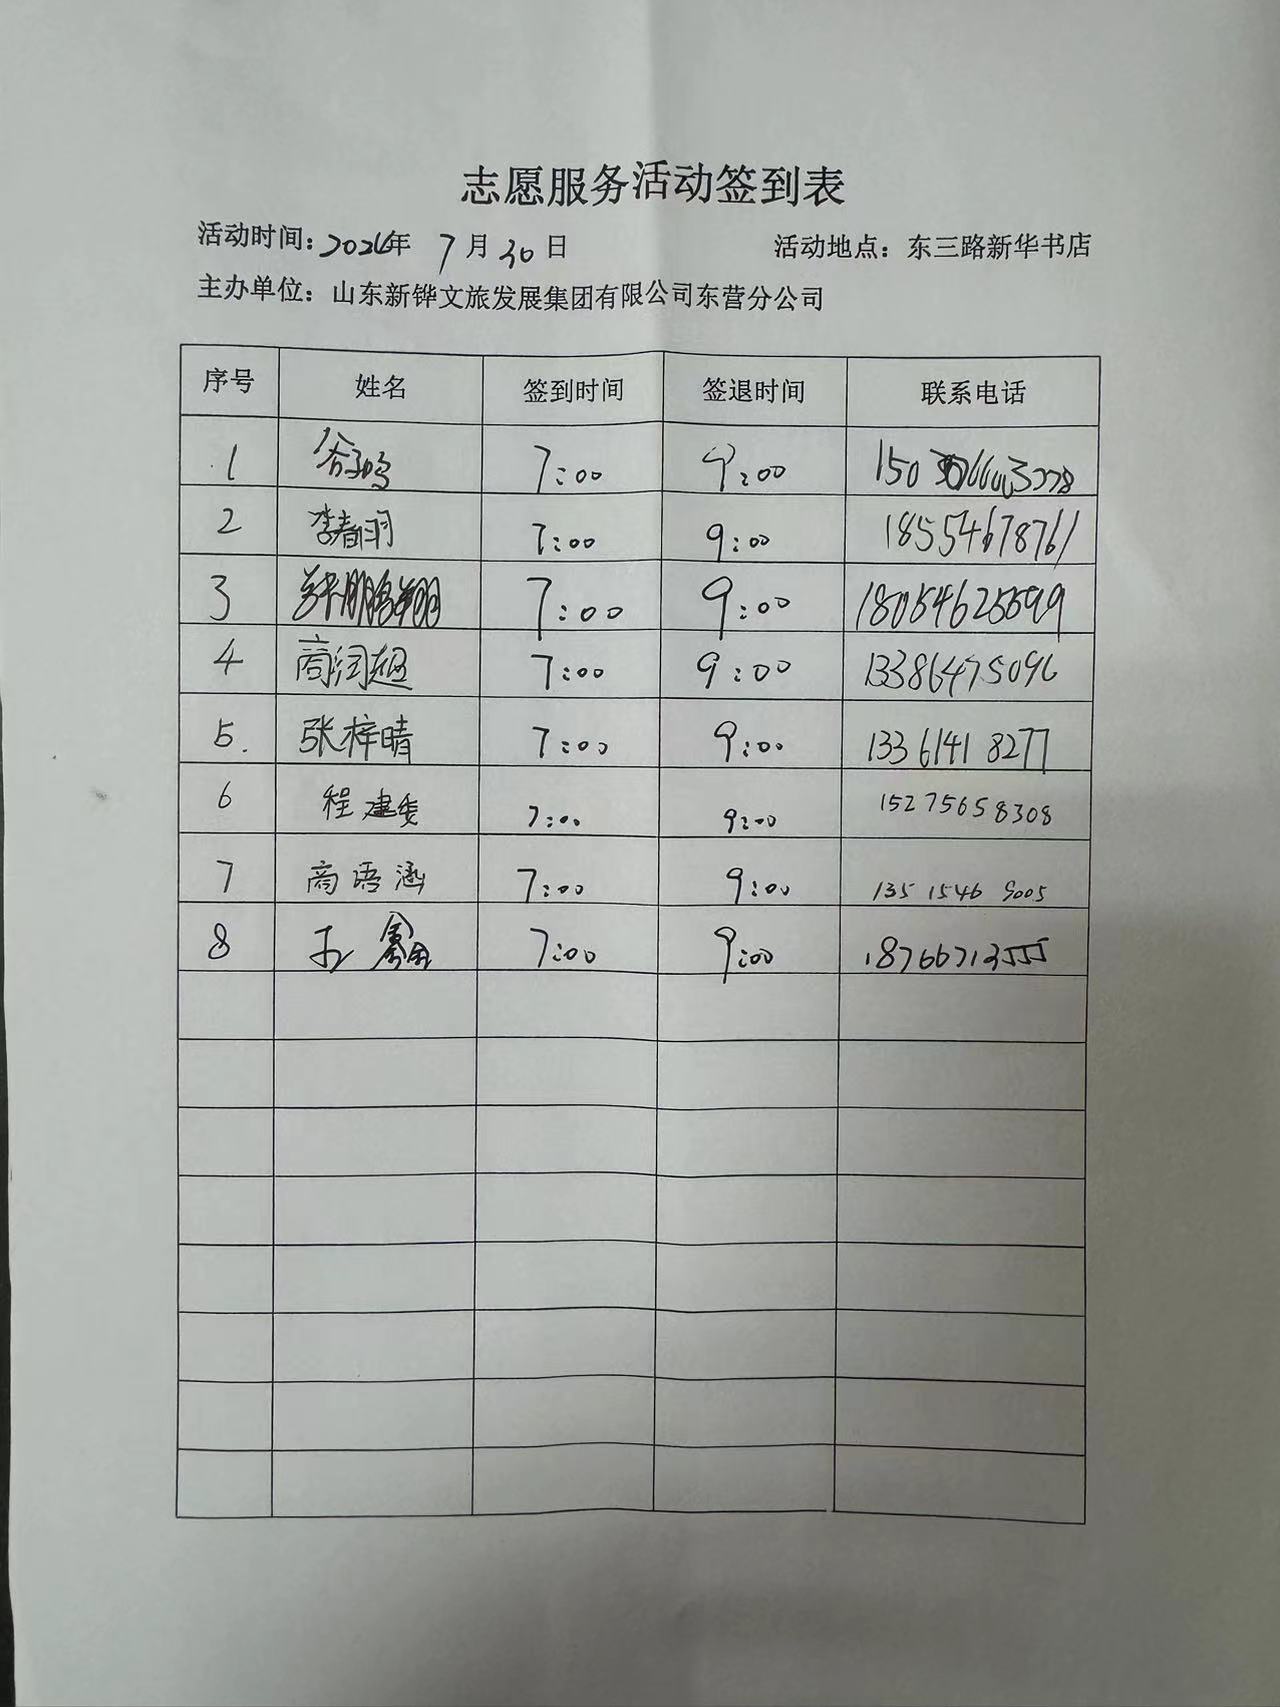 志愿服务活动签到表
活动时间：2026年 7月30日 活动地点：东三路新华书店
主办单位：山东新铧文旅发展集团有限公司东营分公司
序号 姓名 签到时间 签退时间 联系电话
1 7:00 9:00
2 李春明 7:00 9:00 18554678761
3 7:00 9:00 18054625599
4 商润超 7:00 9:00 13386475096
5. 张梓晴 7:00 9:00 13361418277
6 程建委 7:00 9:00 15275658308
7 商语涵 7:00 9:00 135 1546 9005
8 王鑫 7:00 9:00 18766713555